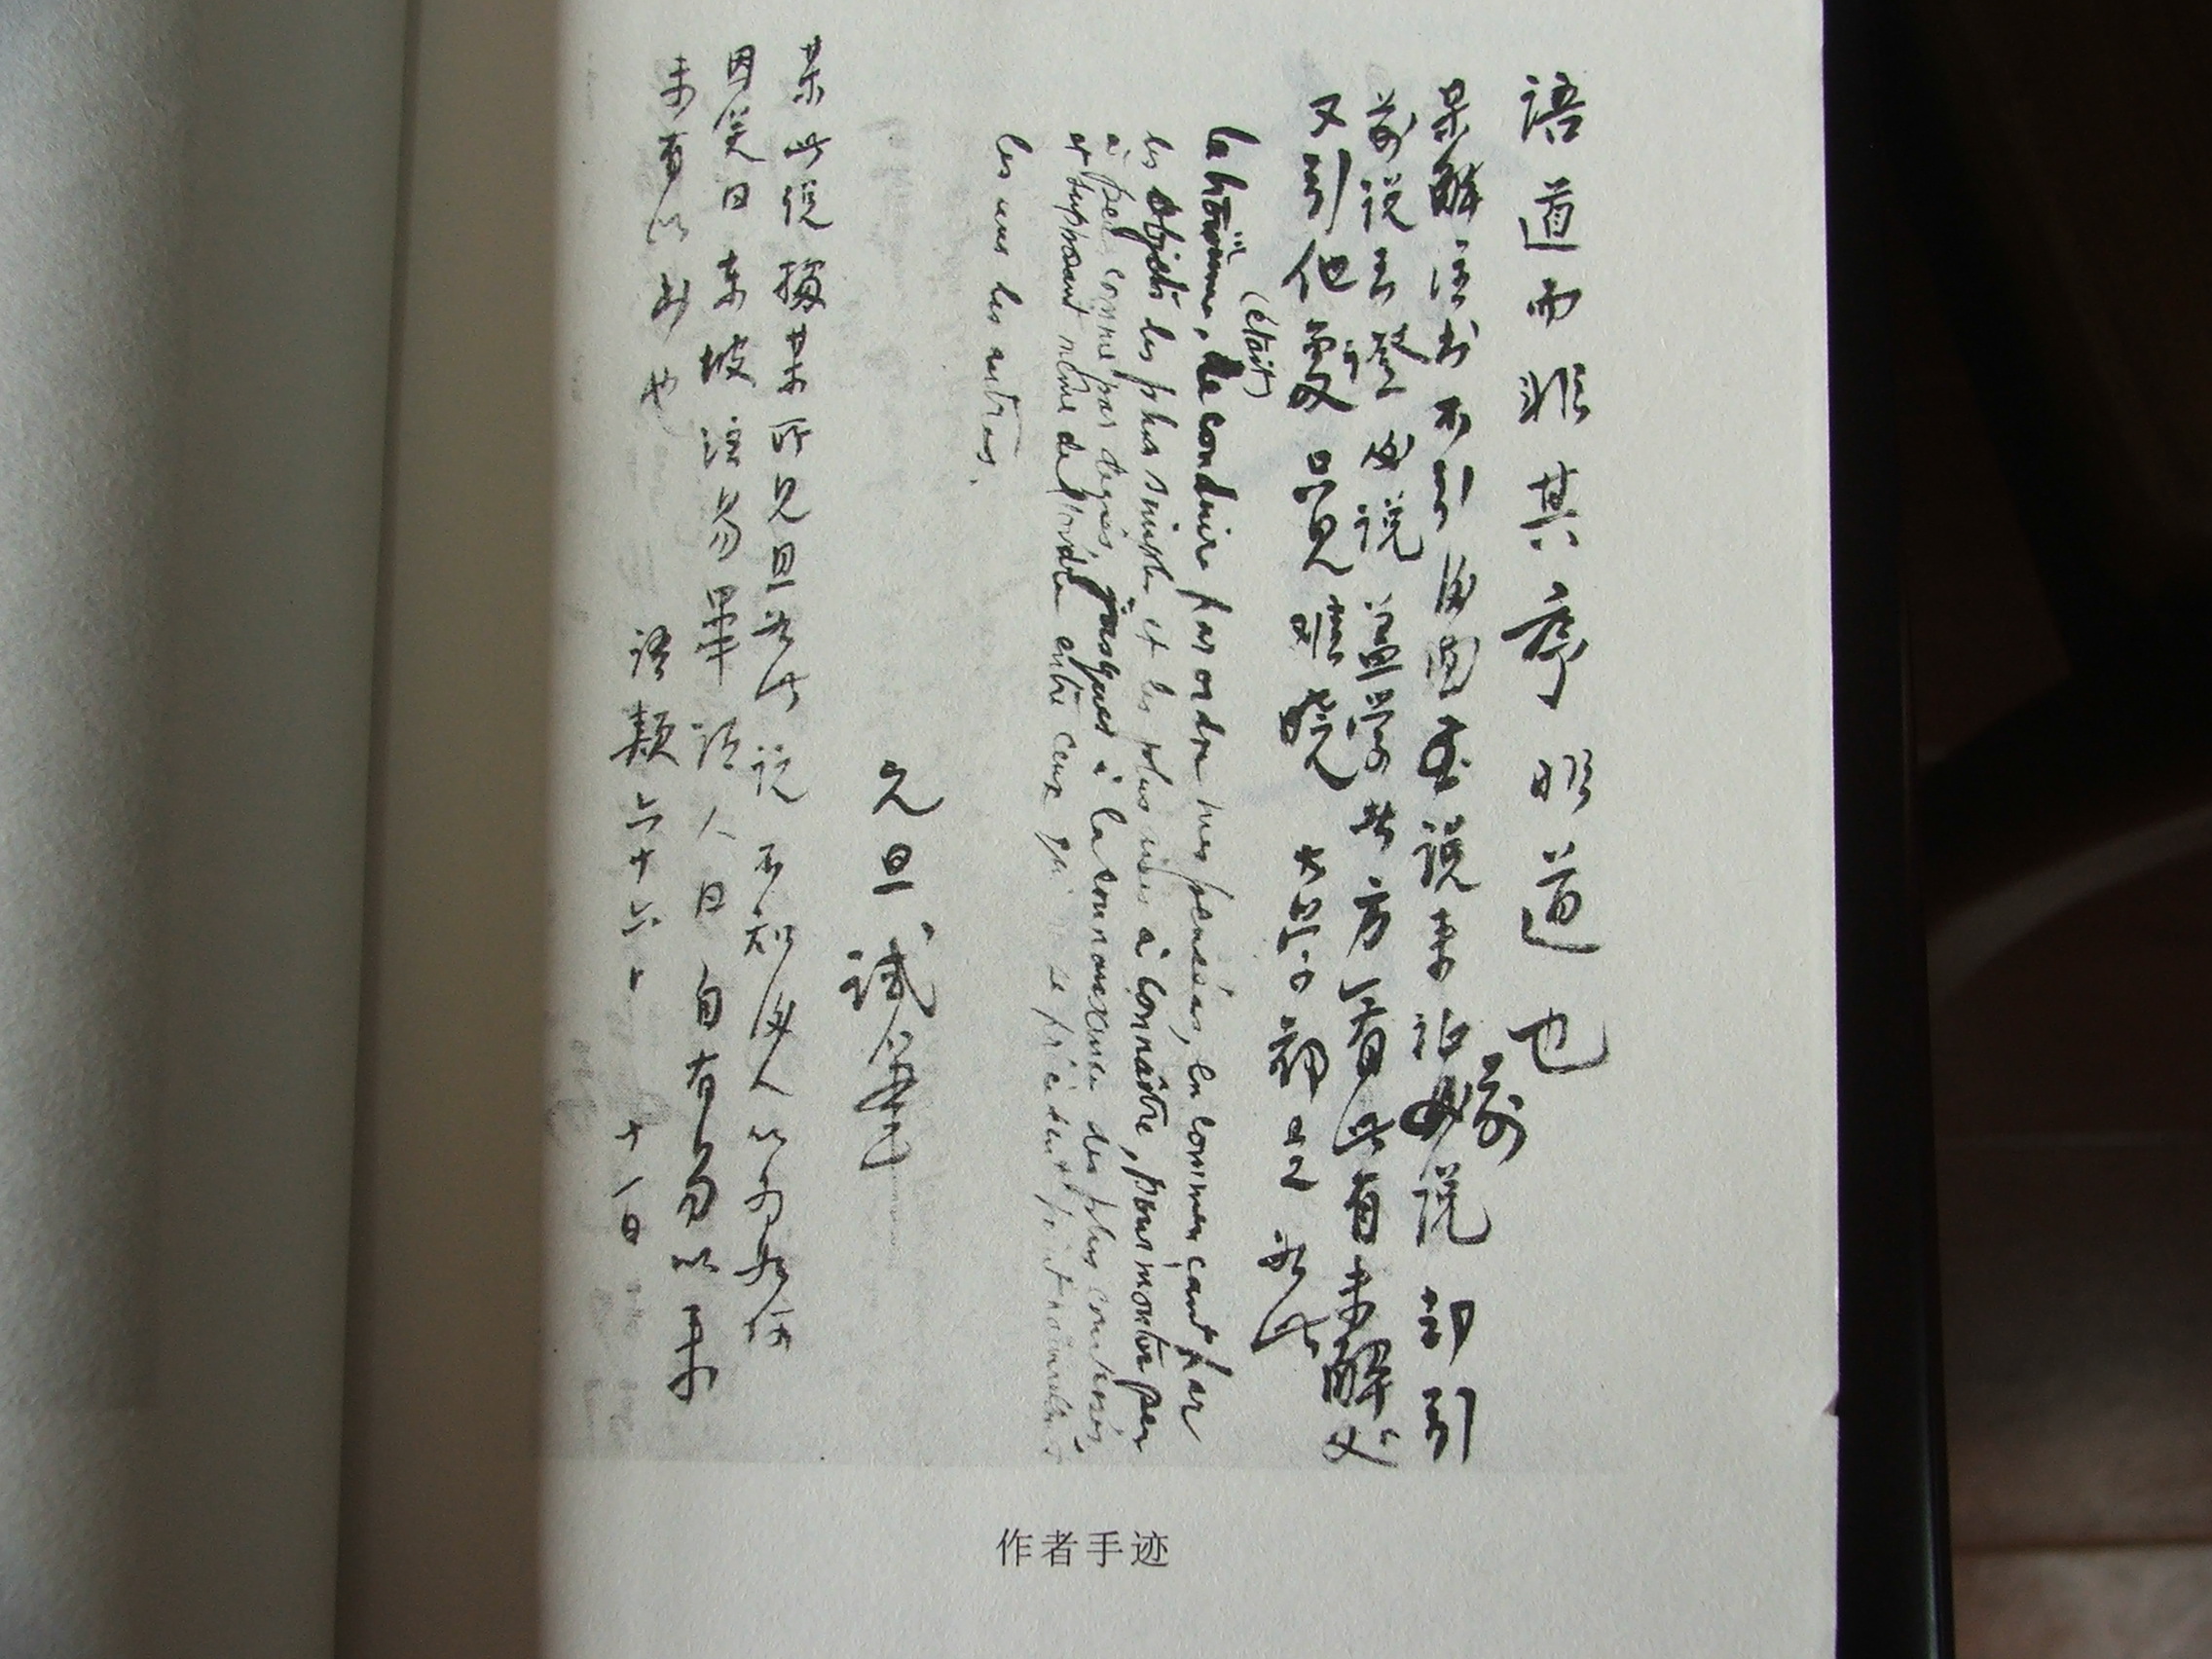 語道而非其序非道也
某解注书不引後面至说来証前说却引
前说去證後说盖学者方看此有未解处
又引他處只见难晓大率都是如此
(était)
la troisième, de conduire par ordre mes pensées, en commençant par
les objets les plus simples et les plus aisés à connaître, pour monter peu
à peu, comme par degrés, jusques à la connaissance des plus composés,
et supposant même de l'ordre entre ceux qui ne se précèdent point naturellement
les uns les autres.
元旦试筆
某此说据某所见且如此说不知後人以为如何
因笑曰東坡注易畢谓人曰自有易以来
未有此书也 语類六十六 十一日
作者手迹